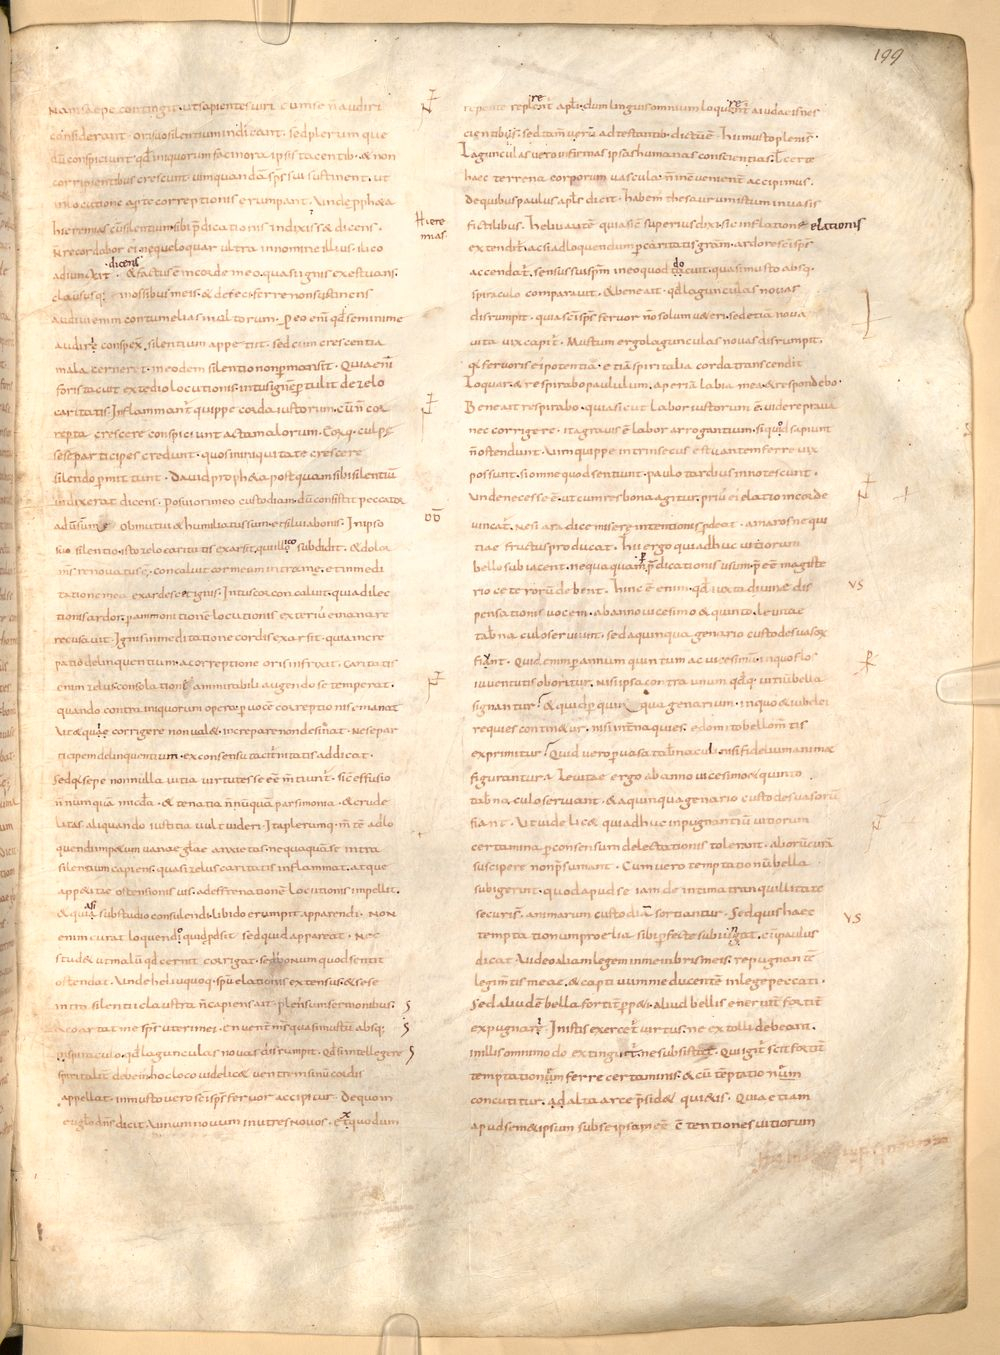 199
Nam saepe contingit ut sapientes viri cum se ñ audiri
considerant orisuo silentium indicant sed plerumque
dū conspiciunt qđ iniquorum facinora ipsis tacentib. & non
corripientibus crescunt vim quandā sp̄s sui sustinent ut
in locutione apte correptionis erumpant. Unde proph&a
hieremias cū silentium sibi p̄dicationis indixiss& dicens.
Hiere
mias
ñ recordabor ei neque loquar ultra in nomine illius ilico
adiunxit dicens & factus ē in corde meo quasi ignis exestuans
claususq; in ossibus meis & defeci ferre non sustinens
audivi enim contumelias multorum. Peo enī qđ se minime
audiri conspex silentium appetiit sed cum crescentia
mala cerneret in eodem silentio non pmansit. Quia enī
foris tacuit ex tedio locutionis intus ignē ptulit de zelo
caritatis. Inflammant quippe corda iustorum cū ñ cor
repta crescere conspiciunt acta malorum. Eorq. culpę
sese participes credunt quos in iniquitate crescere
silendo pmittunt. David proph&a postquam sibi silentiū
indixerat dicens. Posui ori meo custodiam dū consistit peccator
adūsum me obmutui & humiliatus sum et silui a bonis. In ipso
suo silentio isto zelo caritatis exarsit qui ilico subdidit & dolor
m̄s renovatus ē. concaluit cor meum intra me. et in medi
tatione mea exardesc& ignis. Intus cor concaluit quia dilec
tionis ardor p ammonitionē locutionis exteriu emanare
recusavit. Ignis in meditatione cordis exarsit quia incre
patio delinquentium a correptione oris infrixit. caritatis
enim zelus consolatione ammirabili augendo se temperat
quando contra iniquorum opera p vocē correptionis emanat
ut & quos corrigere non val& increpare non desinat. Ne se par
ticipem delinquentium ex consensu taciturnitatis addicat.
Sed quia sepe nonnulla vitia virtutes se eē mentiunt. Sic effusio
ñ numquā micđa & tenatia ñ nūquā parsimonia & crude
litas aliquando iustitia vult videri. Ita plerumq. m̄te ad lo
quendum p&um vanae glae anxi&as nequaquā se intra
silentium capiens quasi zelus caritatis inflammat. atque
app&itae ostensionis vis ad effrenationē locutionis impellit.
& quasi substudio consulendi libido erumpit apparendi. Non
enim curat loquendo quid psit sed quid appareat. Nec
stud& ut malū qđ cernit corrigat. sed bonum quod sentit
ostendat. Unde heliu quoq. sp̄u elationis extensus & sese
intra silentii claustra ñ capiens ait. plen' sum sermonibus.
& coartat me sp̄s uteri mei. en venter m̄s quasi mustū absq;
spiraculo. qđ lagunculas novas disrumpit. Qđ si intellegere
spiritalit debem. hoc loco videlic& ventrem sinū cordis
appellat. in musto vero sci sp̄s fervor accipitur. De quo in
evglo dn̄s dicit. Vinum novum in utres novos. ex quo dum
repente replerent apli. dum linguis omnium loquerent a iudaeis nes
cientibus. sed tam verū adtestantib. dictū ē. hi musto pleni s̄.
Lagunculas vero infirmas ipsas humanas conscientias. l certe
haec terrena corporum vascula ñ inconvenient accipimus.
De quibus paulus apl's dicit. habem thesaurum istum in vasis
fictilibus. heliu aut ē quia sic superius dixi. sic inflatione elationis
extendit. ac si ad loquendum p caritatis grām. ardore sci sp̄s
accendat. sensus suūspm in eo quod tacuit. quasi musto absq.
spiraculo comparavit. & bene ait. qđ lagunculas novas
disrumpit. quia sci sp̄s fervor ñ solum v&eri. sed etiā nova
vita vix capit. Mustum ergo lagunculas novas disrumpit.
qa fervoris ei potentia. etiā spiritalia corda transcendit
Loquar. & respirabo paululum. aperiā labia mea & respondebo.
Bene ait respirabo. quia sicut labor iustorum ē. videre prava
nec corrigere. ita gravis ē labor arrogantium. si quod sapiunt
ñ ostendunt. Vim quippe intrinsecus estuantem ferre vix
possunt. si omne quod sentiunt. paulo tardius innotescunt.
Unde necesse ē. ut cum res bona agitur. priu ei elatio in corde
vincat. Ne si a radice misere intentionis pdeat. amaros nequi
tiae fructus producat. Hii ergo qui adhuc vitiorum
bello subiacent. nequaquam p̄dicationis usum. p eē magiste
rio ceterorū debent. hinc ē enim. qđ iuxta divinae dis
vs
pensationis vocem. ab anno vicesimo & quinto. levitae
tabnaculo serviunt. sed a quinquagenario custodes vasor
fiant. Quid enim p annum quintum ac vicesimū. in quo flos
iuventutis oboritur. nisi ipsa contra unum qđq. vitiū bella
signantur? & quid p quinquagenarium. in quo & iubelei
requies contin&ur. nisi interna quies. edomito bello m̄tis
exprimitur? Quid vero p vasa tabnaculi. nisi fideliu animae
figurantur? Levitae ergo ab anno vicesimo & quinto
tabnaculo serviant. & a quinquagenario custodes vasorū
fiant. Ut videlic& qui adhuc inpugnantiū vitiorum
certamina p consensum delectationis tolerant. aliorū curā
suscipere non p̄sumant. Cum vero temptationū bella
subigerint. quod apud se iam de intima tranquillitate
securi s̄. animarum custodiā sortiantur. Sed quis haec
vs
temptationum proelia sibi pfecte subiungat. cū paulus
dicat. Video aliam legem in membris meis. repugnantē
legi m̄tis meae. & captivum me ducentē in lege peccati.
Sed aliud ē bella fortit ppeti. aliud bellis enervit fortit
expugnari. In istis exercet virtus. ne extolli debeant.
in illis omnimodo extinguit. ne subsistat. Qui igit scit fortit
temptationum ferre certaminis. & cū temptationum
concutitur. ad alta arce p̄sid& quietis. Quia etiam
apud sem&ipsum subse ipsam eē ctentiones vitiorum